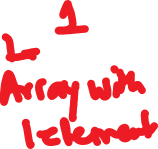 1
Array with
1 element